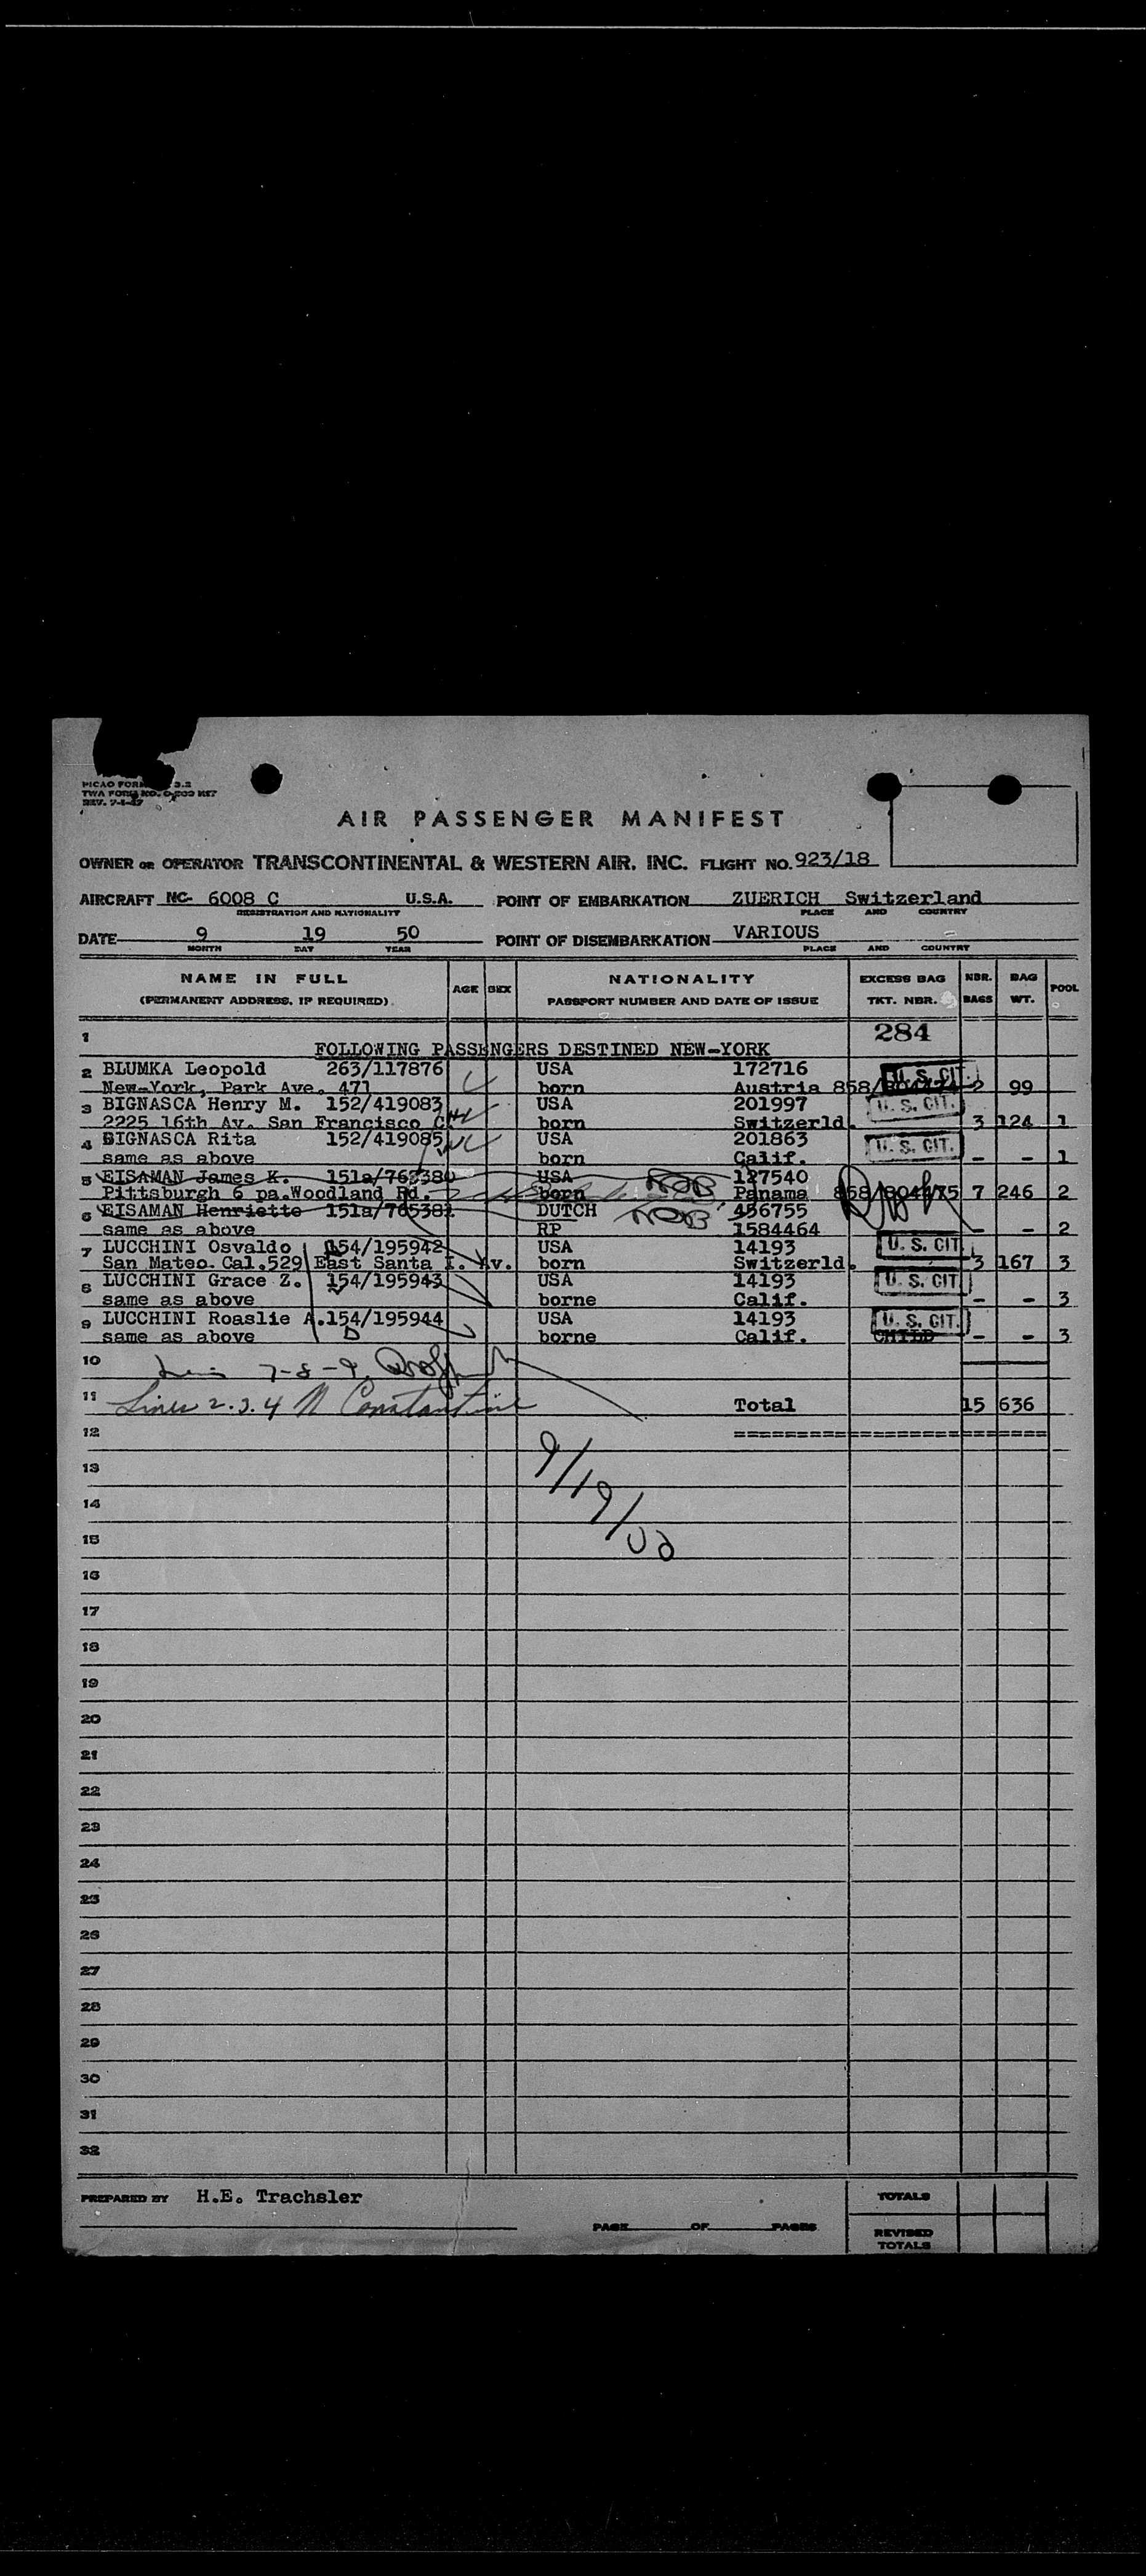 PICAO FORM 3.2
TWA FORM NO. O-200 NET
REV. 7-1-47
AIR PASSENGER MANIFEST
OWNER OR OPERATOR TRANSCONTINENTAL & WESTERN AIR, INC. FLIGHT NO. 923/18
AIRCRAFT NC- 6008 C U.S.A. POINT OF EMBARKATION ZUERICH Switzerland
REGISTRATION AND NATIONALITY PLACE AND COUNTRY
DATE 9 19 50 POINT OF DISEMBARKATION VARIOUS -
MONTH DAY YEAR PLACE AND COUNTRY
NAME IN FULL AGE SEX NATIONALITY EXCESS BAG NBR. BAG POOL
(PERMANENT ADDRESS, IF REQUIRED) PASSPORT NUMBER AND DATE OF ISSUE TKT. NBR. BAGS WT.
1 284
FOLLOWING PASSENGERS DESTINED NEW-YORK
2 BLUMKA Leopold 263/117876 USA 172716 U.S. CIT.
New-York, Park Ave. 471 born Austria 858/ 2 99
3 BIGNASCA Henry M. 152/419083 USA 201997 U.S. CIT.
2225 16th Av. San Francisco C born Switzerld. 3 124 1
4 BIGNASCA Rita 152/419085 USA 201863 U.S. CIT.
same as above born Calif. - - 1
5 EISAMAN James K. 151a/765380 USA 127540 NOB
Pittsburgh 6 pa.Woodland Rd. born Panama 858/804475 7 246 2
6 EISAMAN Henriette 151a/765381 DUTCH NOB 456755
same as above RP 1584464 - - 2
7 LUCCHINI Osvaldo 154/195942 USA 14193 U.S. CIT.
San Mateo. Cal.529 East Santa I. Av. born Switzerld. 3 167 3
8 LUCCHINI Grace Z. 154/195943 USA 14193 U.S. CIT.
same as above borne Calif. - - 3
9 LUCCHINI Roaslie A.154/195944 USA 14193 U.S. CIT.
same as above borne Calif. CHILD - - 3
10 7-8-9
11 Lines 2.3.4 N Constantine Total 15 636
12 ==========================
13
9/19/50
14
15
16
17
18
19
20
21
22
23
24
25
26
27
28
29
30
31
32
PREPARED BY H.E. Trachsler TOTALS
PAGE OF PAGES REVISED
TOTALS